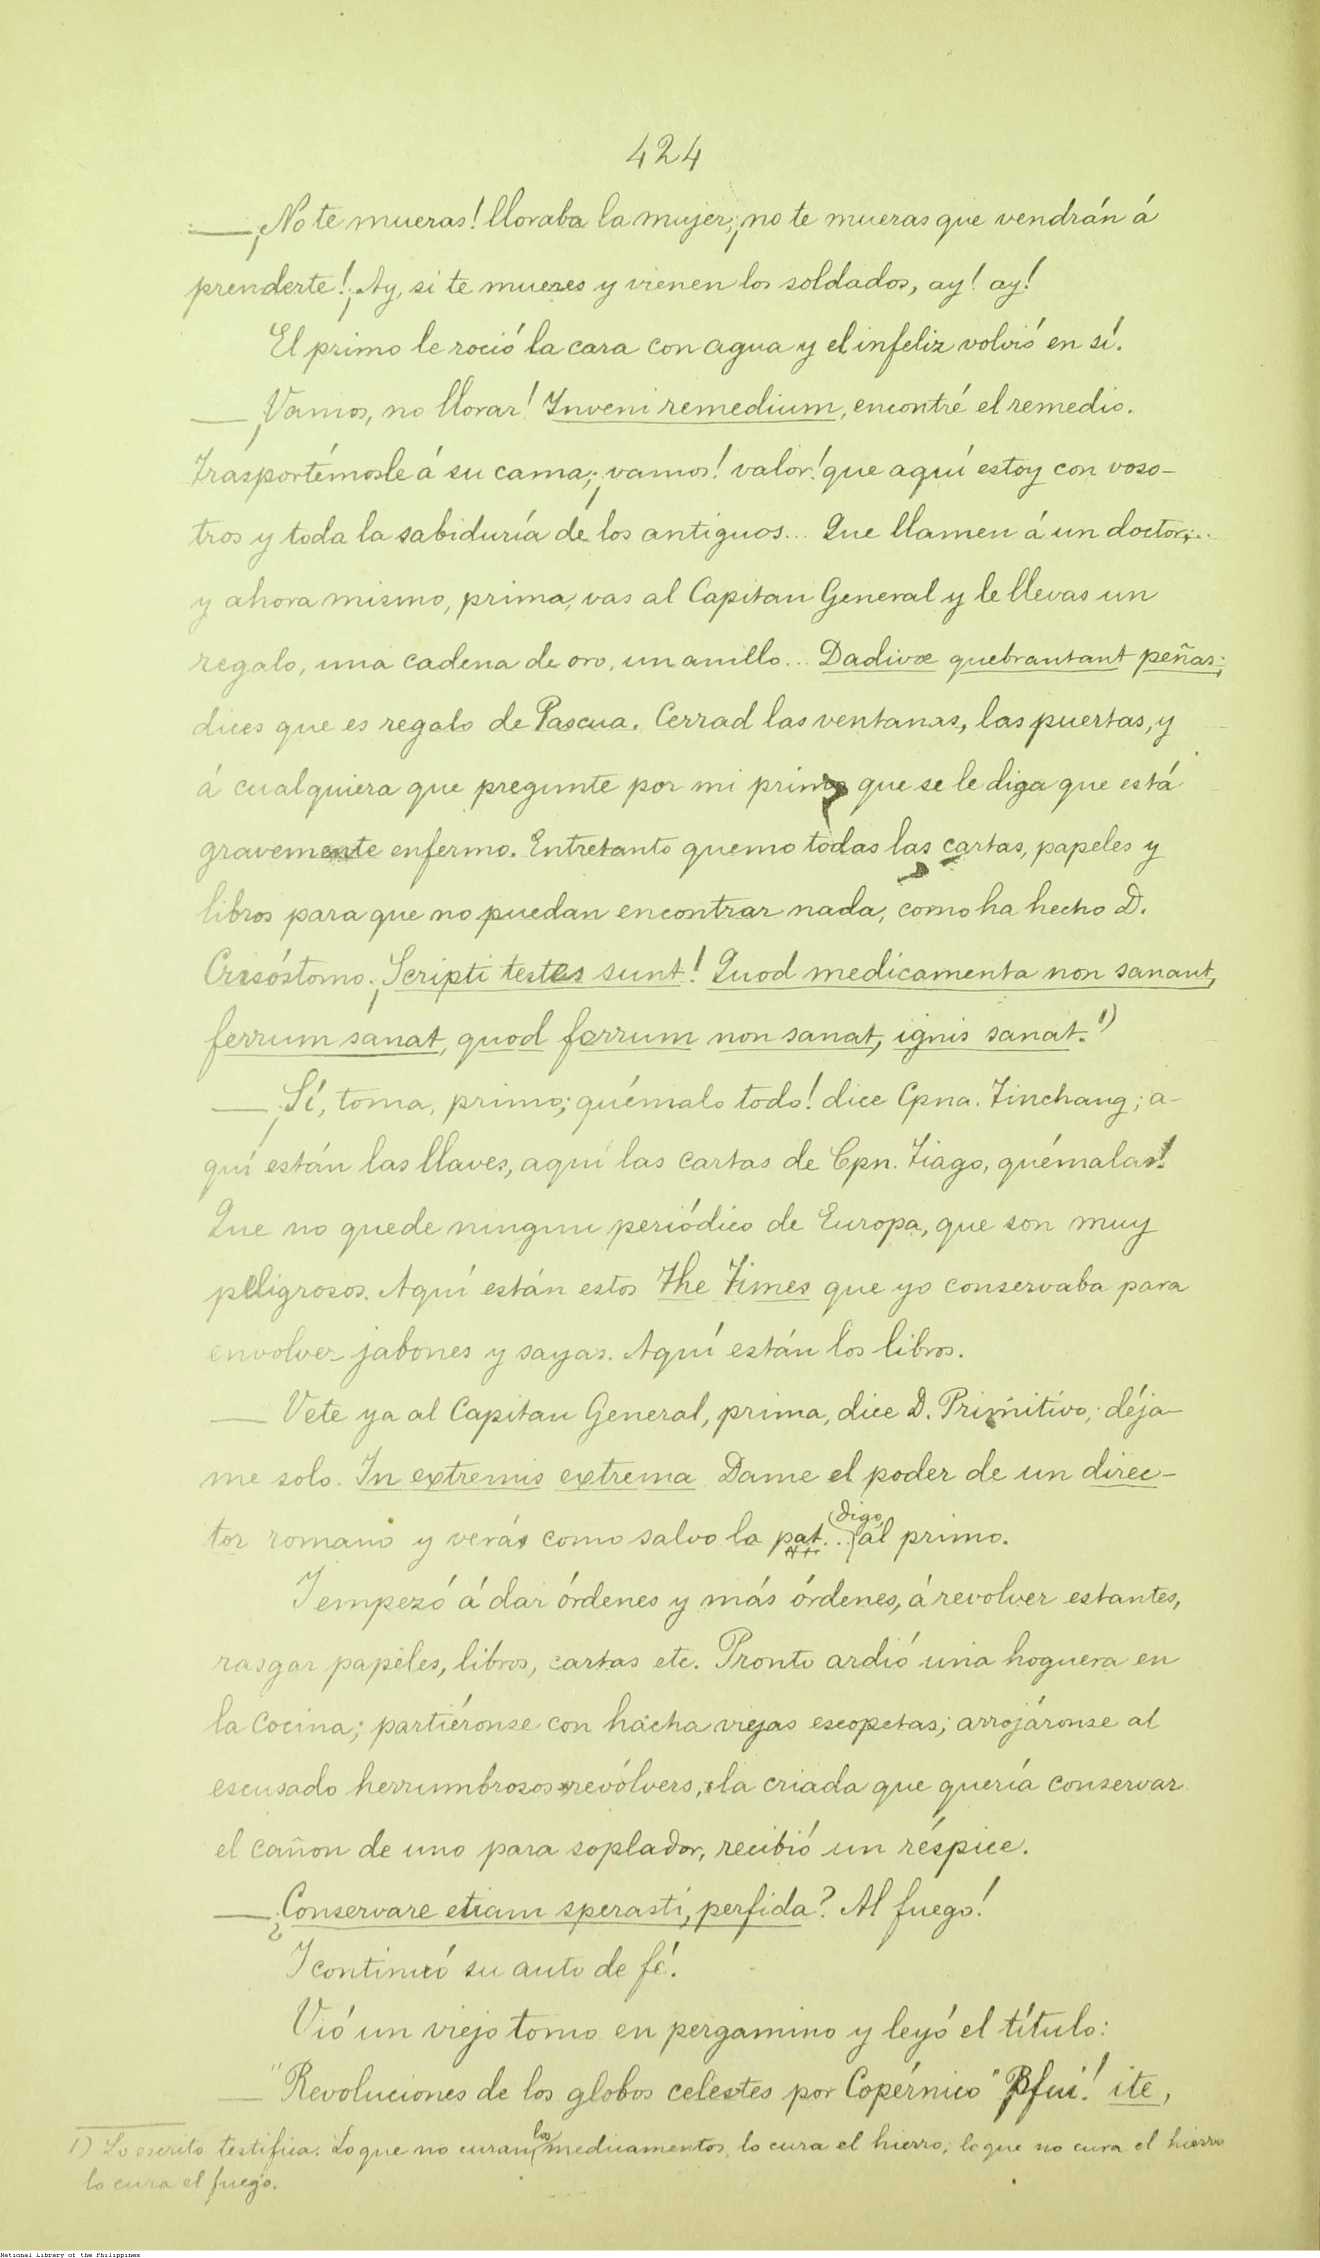 424
— ¡No te mueras! lloraba la mujer; ¡no te mueras que vendrán á
prenderte! ¡Ay, si te mueres y vienen los soldados, ay! ay!
El primo le roció la cara con agua y el infeliz volvió en sí.
— ¡Vamos, no llorar! Inveni remedium, encontré el remedio.
Trasportémosle á su cama; ¡vamos! valor! que aquí estoy con voso-
tros y toda la sabiduría de los antiguos... Que llamen á un doctor;..
y ahora mismo, prima, vas al Capitan General y le llevas un
regalo, una cadena de oro, un anillo... Dadivæ quebrantant peñas;
dices que es regalo de Pascua. Cerrad las ventanas, las puertas, y
á cualquiera que pregunte por mi primo que se le diga que está
gravemente enfermo. Entretanto quemo todas las cartas, papeles y
libros para que no puedan encontrar nada, como ha hecho D.
Crisóstomo. ¡Scripti testes sunt! Quod medicamenta non sanant,
ferrum sanat, quod ferrum non sanat, ignis sanat. 1)
— ¡Sí, toma, primo; quémalo todo! dice Cpna. Tinchang; a-
quí están las llaves, aquí las cartas de Cpn. Tiago, quémalas!
Que no quede ningun periódico de Europa, que son muy
peligrosos. Aquí están estos The Times que yo conservaba para
envolver jabones y sayas. Aquí están los libros.
— Vete ya al Capitan General, prima, dice D. Primitivo; déja-
me solo. In extremis extrema. Dame el poder de un direc-
tor romano y verás como salvo la pat... (digo,) al primo.
I empezó á dar órdenes y más órdenes, á revolver estantes,
rasgar papeles, libros, cartas etc. Pronto ardió una hoguera en
la cocina; partiéronse con hacha viejas escopetas; arrojáronse al
escusado herrumbrosos revólvers, la criada que quería conservar
el cañon de uno para soplador, recibió un réspice.
— ¿Conservare etiam sperasti, perfida? Al fuego!
I continuó su auto de fé.
Vió un viejo tomo en pergamino y leyó el título:
— "Revoluciones de los globos celestes por Copérnico" Pfui! ite,
1) Lo escrito testifica. Lo que no curan los medicamentos, lo cura el hierro; lo que no cura el hierro
lo cura el fuego.
National Library of the Philippines